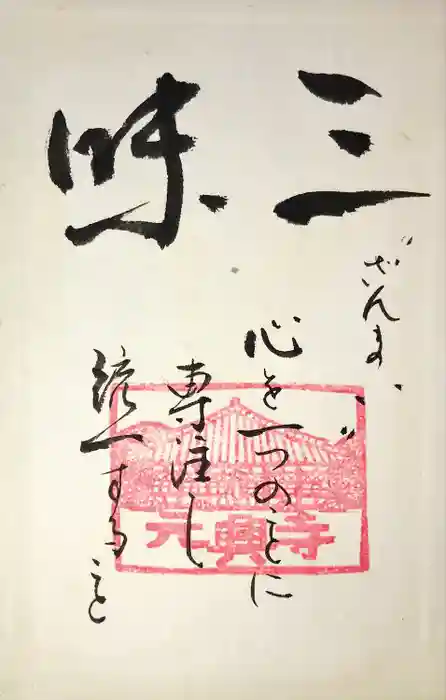 三昧
“ざんまい”
心を一つのことに
専注し
統一すること
元興寺